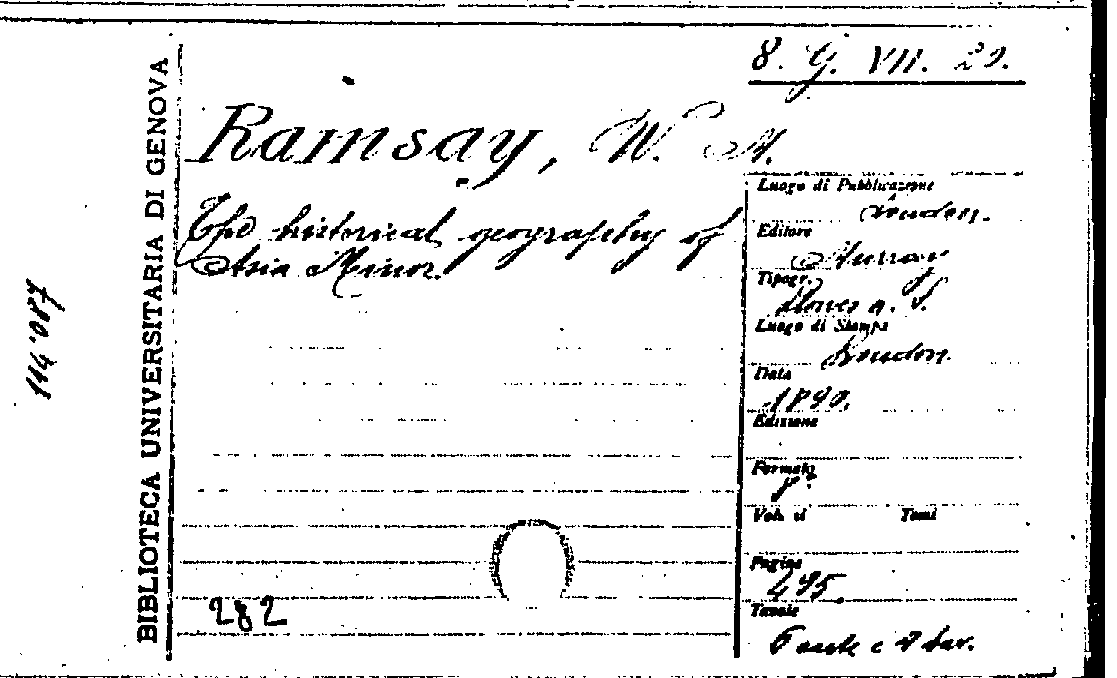 8. G. VII. 20.
Ramsay, W. M.
The historical geography of
Asia Minor.
BIBLIOTECA UNIVERSITARIA DI GENOVA
114.087
Luogo di Pubblicazione
London.
Editore
Murray
Tipogr.
Luogo di Stampa
London.
Data
1890.
Edizione
Formato
8°
Vol. il Tomi
Pagine
495.
Tavole
282